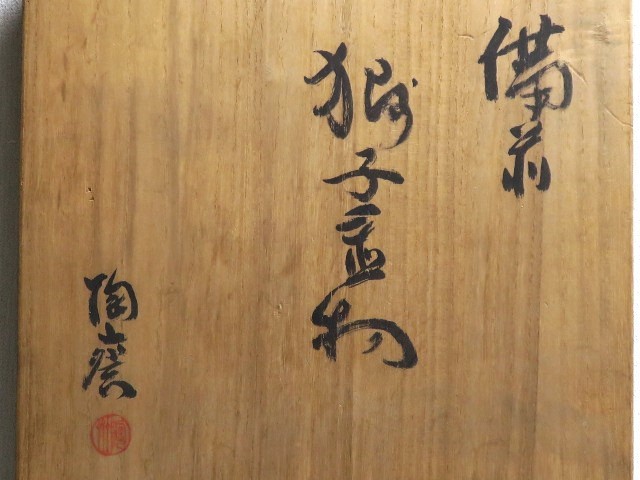 備前
獅子置物
陶嵓